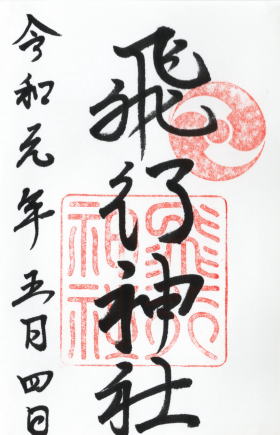 飛行神社
令和元年五月四日
飛行神社